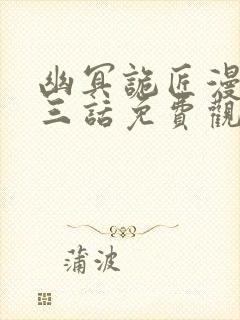 幽冥詭匠漫
三話免費觀
蒲波